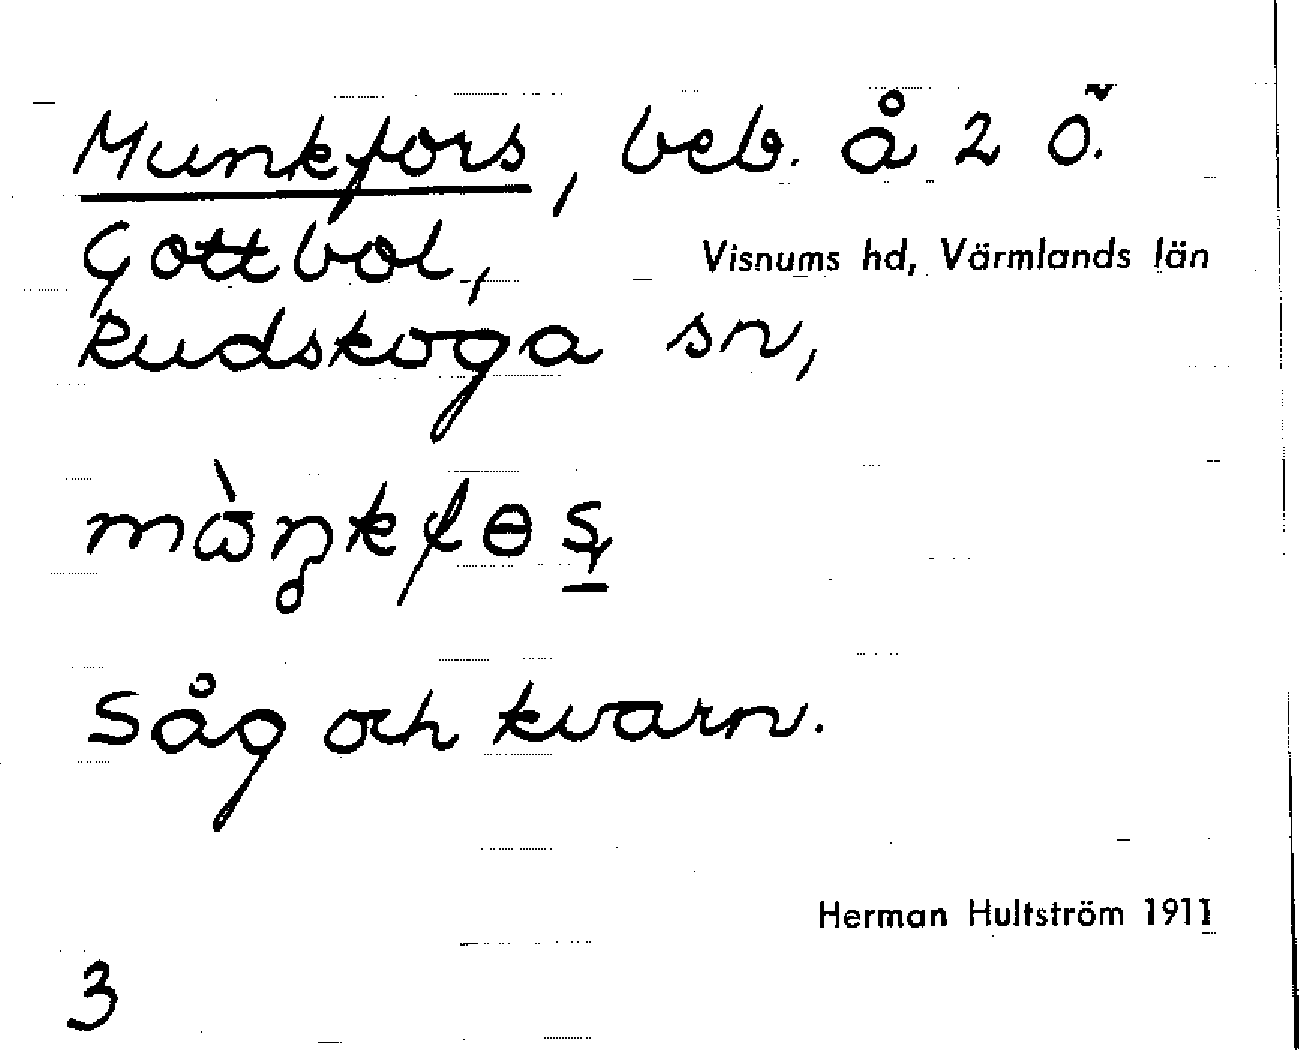 Munkfors, beb. å 2 Ö.
Gottbol, Visnums hd, Värmlands län
Rudskoga sn,
Såg och kvarn.
Herman Hultström 1911
3